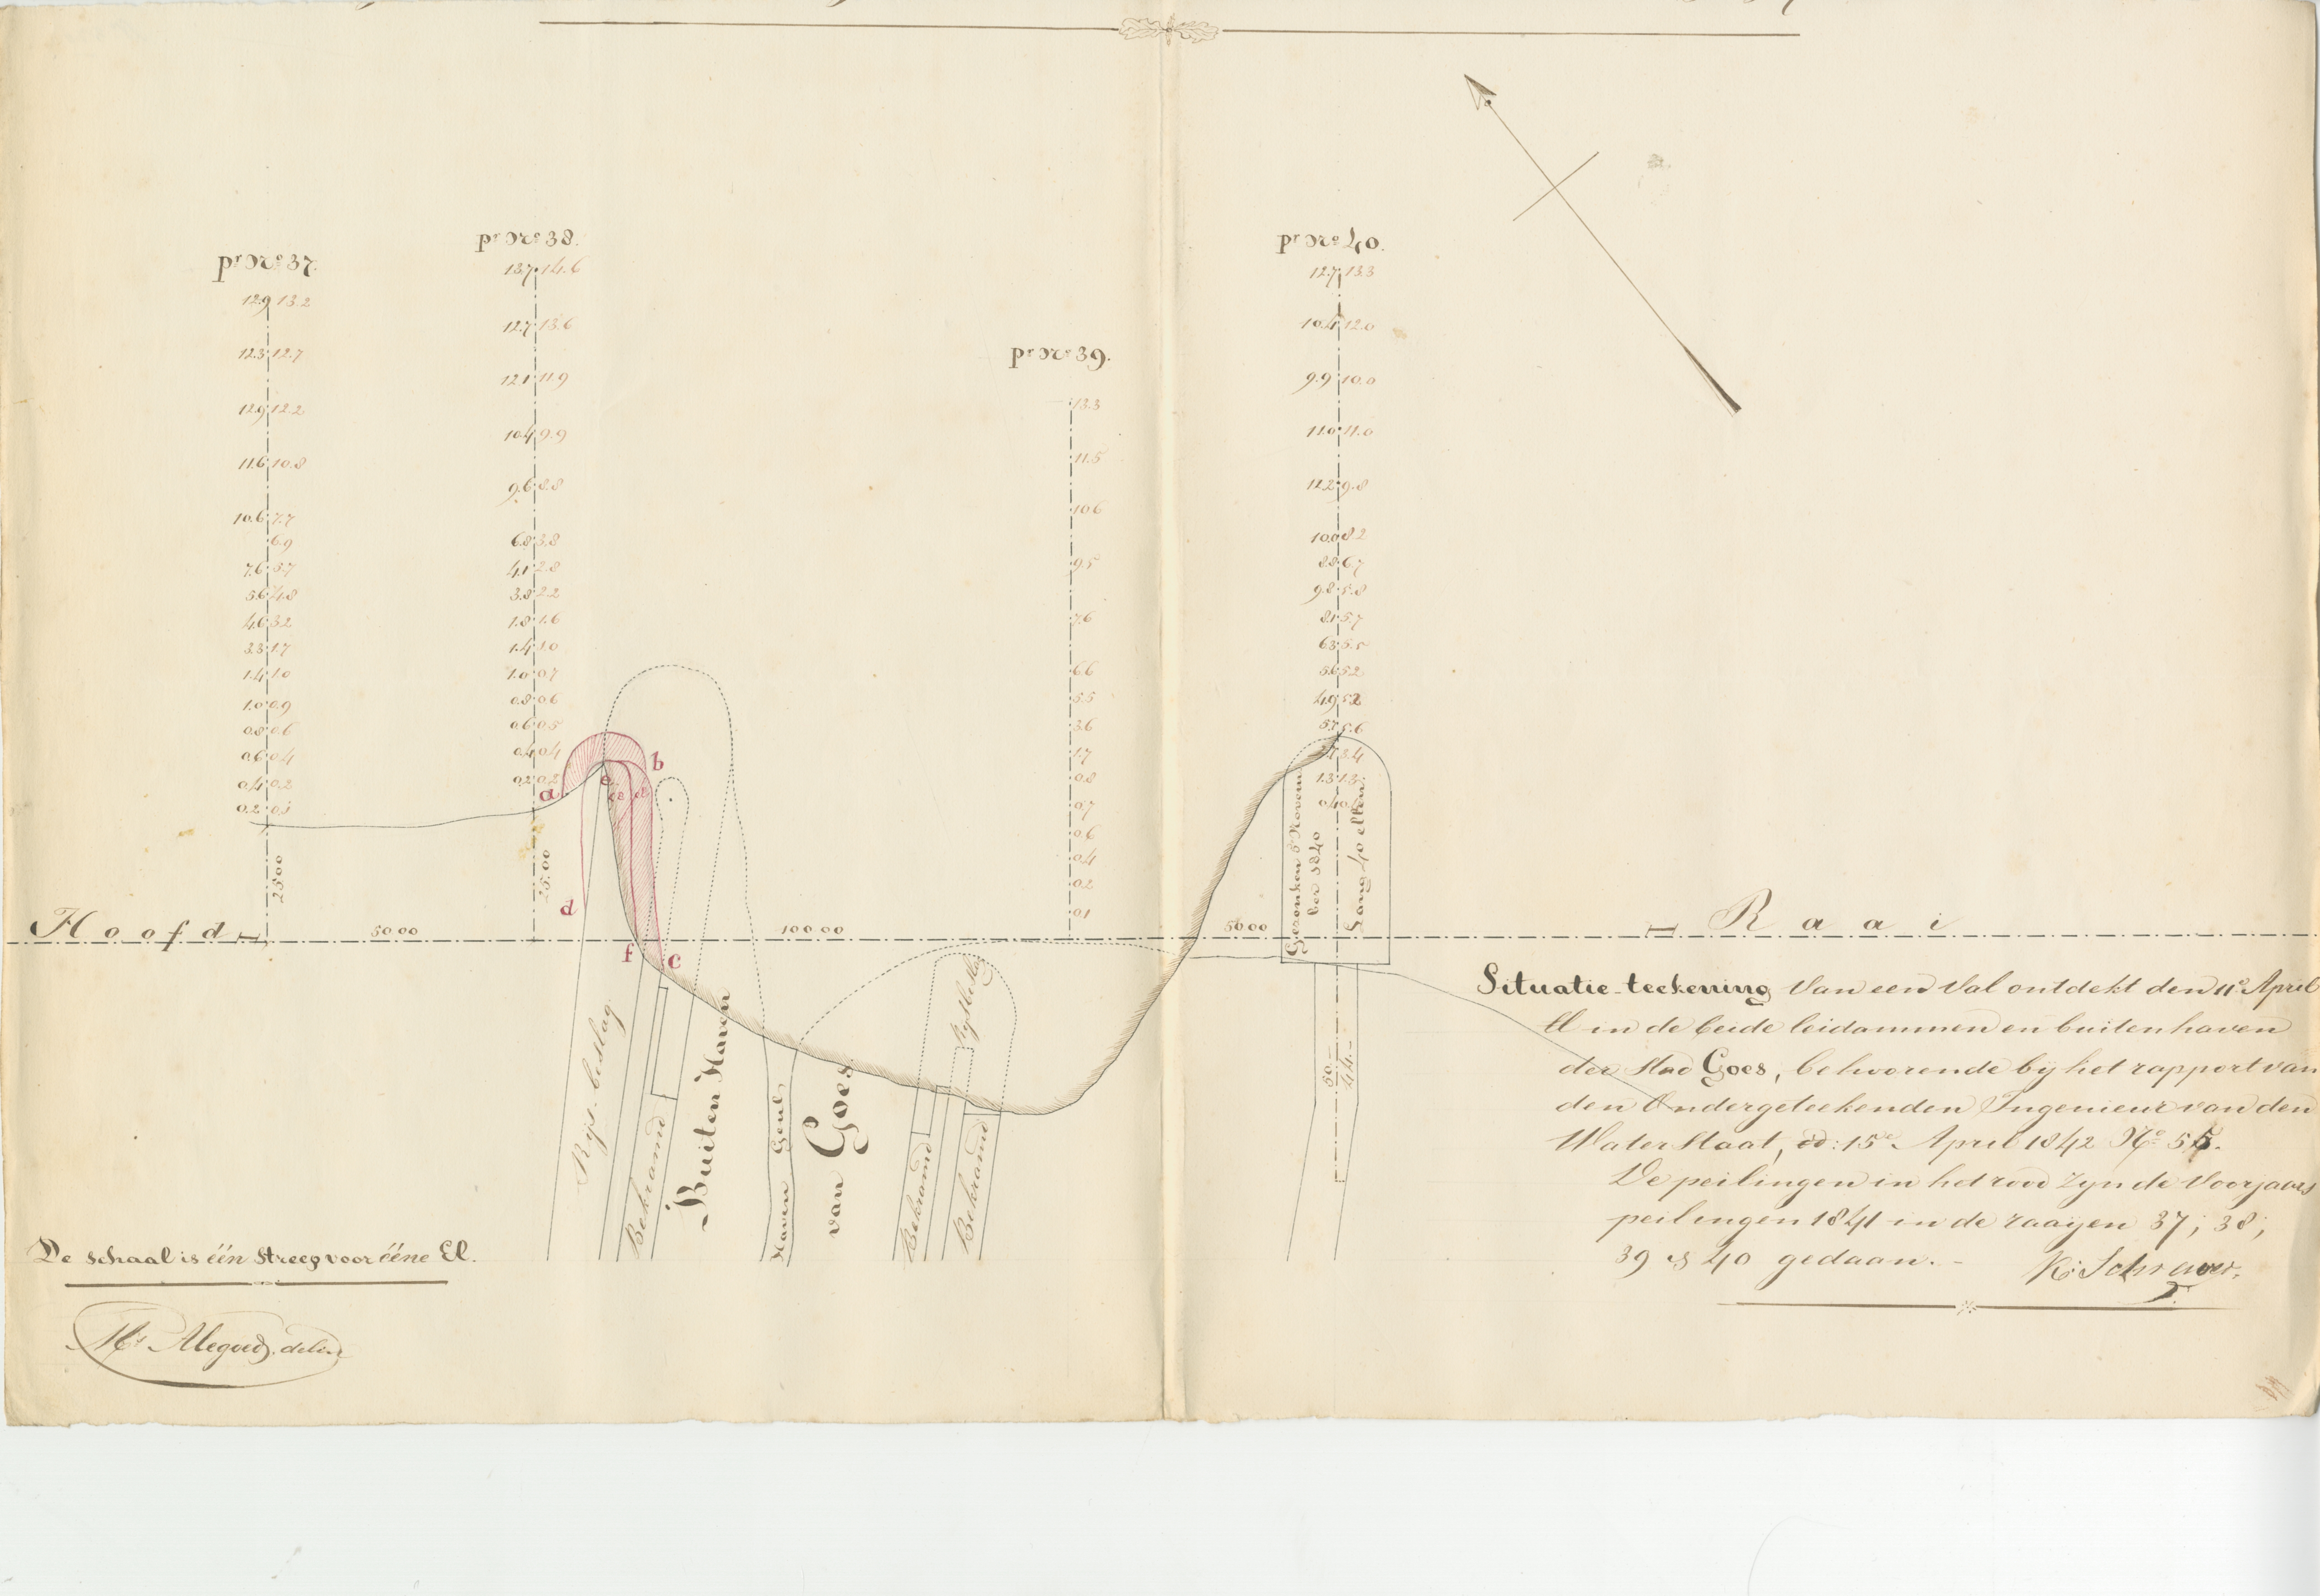 pr No 37.
12.9 13.2
12.3 12.7
12.9 12.2
11.6 10.8
10.6 7.7
6.9
7.6 5.7
5.6 4.8
4.6 3.2
3.3 1.7
1.4 1.0
1.0 0.9
0.8 0.6
0.6 0.4
0.4 0.2
0.2 0.1
25.00
pr No 38.
13.7 14.6
12.7 13.6
12.1 11.9
10.4 9.9
9.6 8.8
6.8 3.8
4.1 2.8
3.8 2.2
1.8 1.6
1.4 1.0
1.0 0.7
0.8 0.6
0.6 0.5
0.4 0.4
0.2 0.2
25.00
pr No 39.
13.3
11.5
10.6
9.5
7.6
6.6
5.5
3.6
1.7
0.8
0.7
0.6
0.4
0.2
0.1
pr No 40.
12.7 13.3
10.4 12.0
9.9 10.0
11.0 11.0
12.2 9.8
10.0 8.2
8.8 6.7
9.8 5.8
8.1 5.7
6.3 5.5
5.6 5.2
4.9 5.2
5.7 5.6
3.4
1.3 1.3
Gezonken 5 Novem
ber 1840
Lang 40 ellen
a
b
e
d
f
c
Hoofd
50 00
100 00
50 00
Raai
Rijs-beslag
Bekramd
Buiten Haven
Haven Geul
van Goes
Bekramd
Rijsbeslag
Bekramd
50.-
44.-
Situatie-teekening Van een Val ontdekt den 11e April
ll in de beide leidammen en buitenhaven
der Stad Goes, behoorende bij het rapport van
den Ondergeteekenden Ingenieur van den
WaterStaat, dd: 15e April 1842 No 55.
De peilingen in het rood zijn de Voorjaars
peilingen 1841 in de raaijen 37; 38;
39 & 40 gedaan.-
De schaal is één Streep voor ééne El.